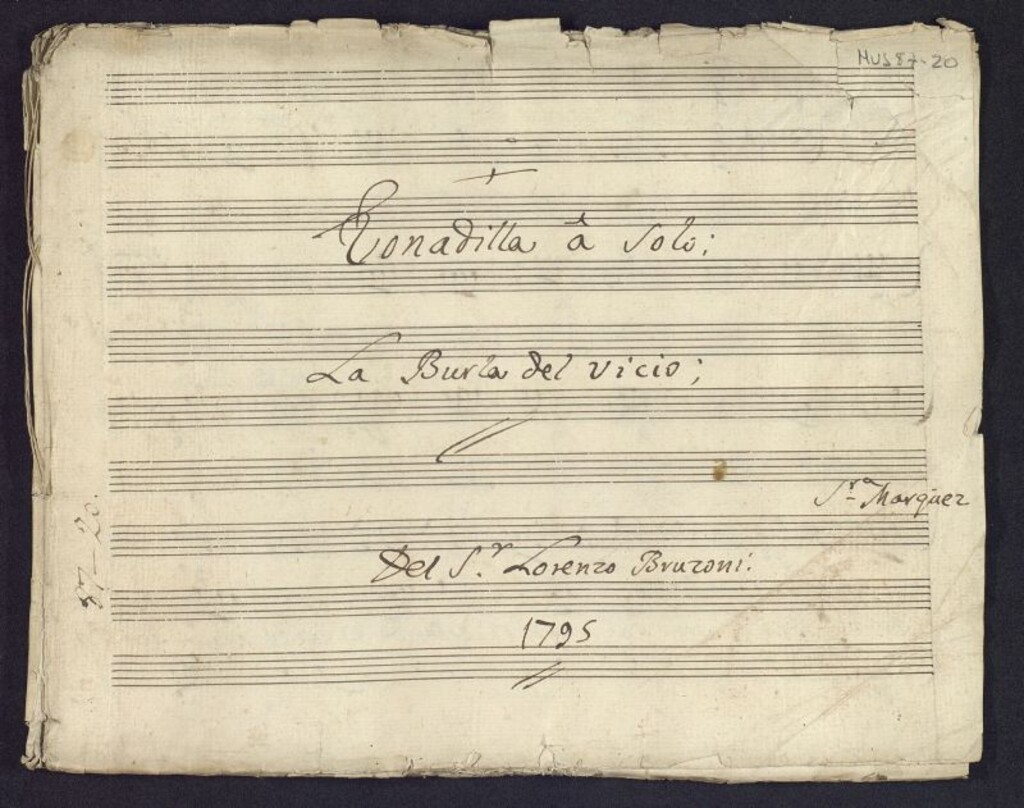 MUS 87-20
Tonadilla á Solo;
La Burla del vicio;
Sr.ª Marquez
Del S.r Lorenzo Bruzoni.
1795
87-20.